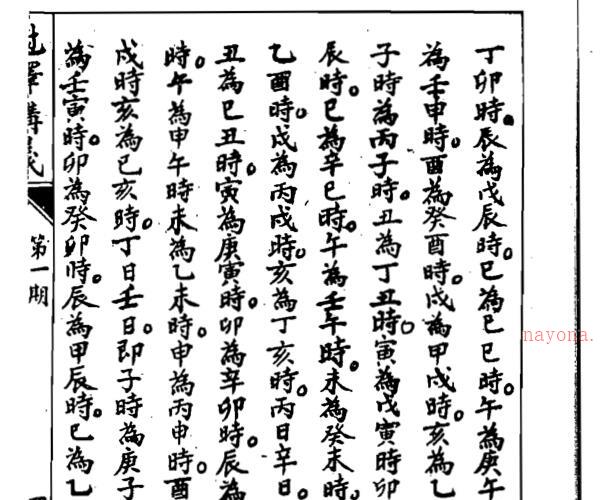 丁卯時。辰為戊辰時。巳為己巳時。午為庚午
為壬申時。酉為癸酉時。戌為甲戌時。亥為乙
子時為丙子時。丑為丁丑時。寅為戊寅時卯
辰時。巳為辛巳時。午為壬午時。未為癸未時。
乙酉時。戌為丙戌時。亥為丁亥時。丙日辛日。
丑為己丑時。寅為庚寅時。卯為辛卯時。辰為
時。午為甲午時未為乙未時申為丙申時。酉
戌時亥為己亥時。丁日壬日。即子時為庚子
為壬寅時。卯為癸卯時。辰為甲辰時。巳為乙
擇講義
第一期
nayona.